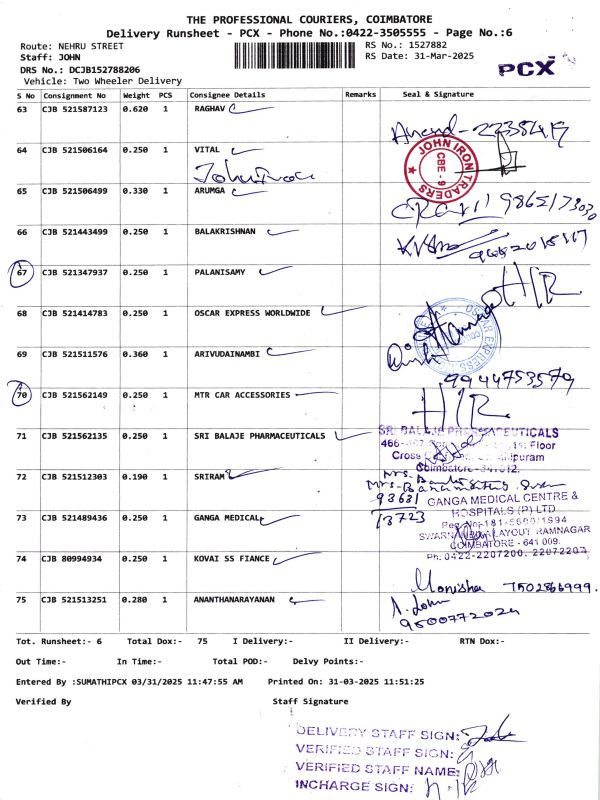 THE PROFESSIONAL COURIERS, COIMBATORE
Delivery Runsheet - PCX - Phone No.:0422-3505555 - Page No.:6
Route: NEHRU STREET RS No.: 1527882
Staff: JOHN RS Date: 31-Mar-2025
DRS No.: DCJB152788206
PCX
Vehicle: Two Wheeler Delivery
S No Consignment No Weight PCS Consignee Details Remarks Seal & Signature
63 CJB 521587123 0.620 1 RAGHAV
Anand
64 CJB 521506164 0.250 1 VITAL
JOHN IRON TRADERS CBE - 9
65 CJB 521506499 0.330 1 ARUMGA
66 CJB 521443499 0.250 1 BALAKRISHNAN
67 CJB 521347937 0.250 1 PALANISAMY
H/R
68 CJB 521414783 0.250 1 OSCAR EXPRESS WORLDWIDE
OSCAR EXPRESS
69 CJB 521511576 0.360 1 ARIVUDAINAMBI
9944753579
70 CJB 521562149 0.250 1 MTR CAR ACCESSORIES
H/R
71 CJB 521562135 0.250 1 SRI BALAJE PHARMACEUTICALS
SRI BALAJE PHARMACEUTICALS
Floor
Cross
Coimbatore - 641012.
72 CJB 521512303 0.190 1 SRIRAM
Mrs.
93631
13723
73 CJB 521489436 0.250 1 GANGA MEDICAL
GANGA MEDICAL CENTRE &
HOSPITALS (P) LTD
LAYOUT RAMNAGAR
COIMBATORE - 641 009.
Ph: 0422-2207200, 2207220
74 CJB 80994934 0.250 1 KOVAI SS FIANCE
Monisha
75 CJB 521513251 0.280 1 ANANTHANARAYANAN
9500772024
Tot. Runsheet:- 6 Total Dox:- 75 I Delivery:- II Delivery:- RTN Dox:-
Out Time:- In Time:- Total POD:- Delvy Points:-
Entered By :SUMATHIPCX 03/31/2025 11:47:55 AM Printed On: 31-03-2025 11:51:25
Verified By Staff Signature
DELIVERY STAFF SIGN:
VERIFIED STAFF SIGN:
VERIFIED STAFF NAME:
INCHARGE SIGN: